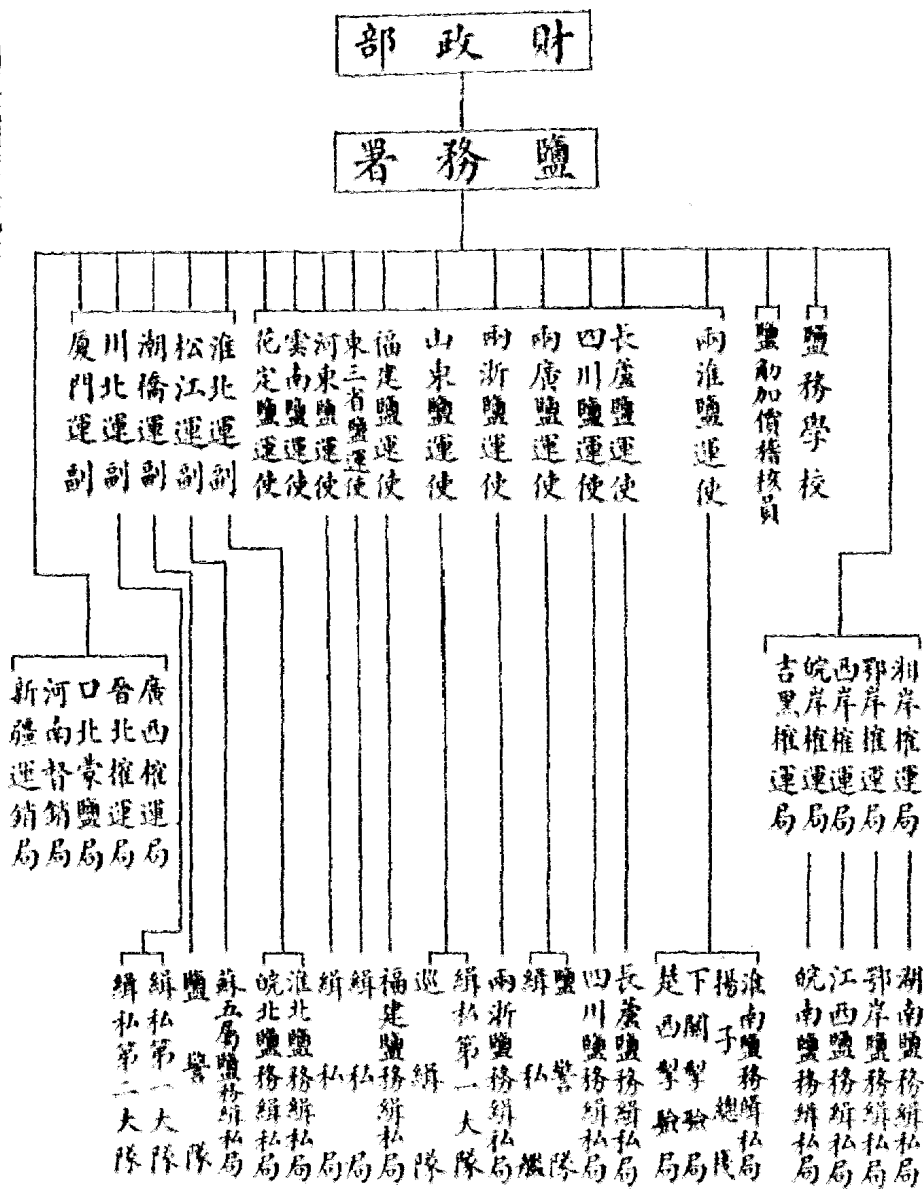 財政部
鹽務署
鹽務學校
鹽觔加價稽核員
兩淮鹽運使
長蘆鹽運使
四川鹽運使
兩廣鹽運使
兩浙鹽運使
山東鹽運使
福建鹽運使
東三省鹽運使
河東鹽運使
雲南鹽運使
花定鹽運使
淮北運副
松江運副
潮橋運副
川北運副
厦門運副
湘岸榷運局
鄂岸榷運局
西岸榷運局
皖岸榷運局
吉黑榷運局
廣西榷運局
晉北榷運局
口北蒙鹽局
河南督銷局
新疆運銷局
湖南鹽務緝私局
鄂岸鹽務緝私局
江西鹽務緝私局
皖南鹽務緝私局
淮南鹽務緝私局
揚子總棧
下關掣驗局
楚西掣驗局
長蘆鹽務緝私局
四川鹽務緝私局
鹽警隊
緝私艦
兩浙鹽務緝私局
緝私第一大隊
巡緝隊
福建鹽務緝私局
緝私局
緝私局
淮北鹽務緝私局
皖北鹽務緝私局
蘇五屬鹽務緝私局
鹽警隊
緝私第一大隊
緝私第二大隊